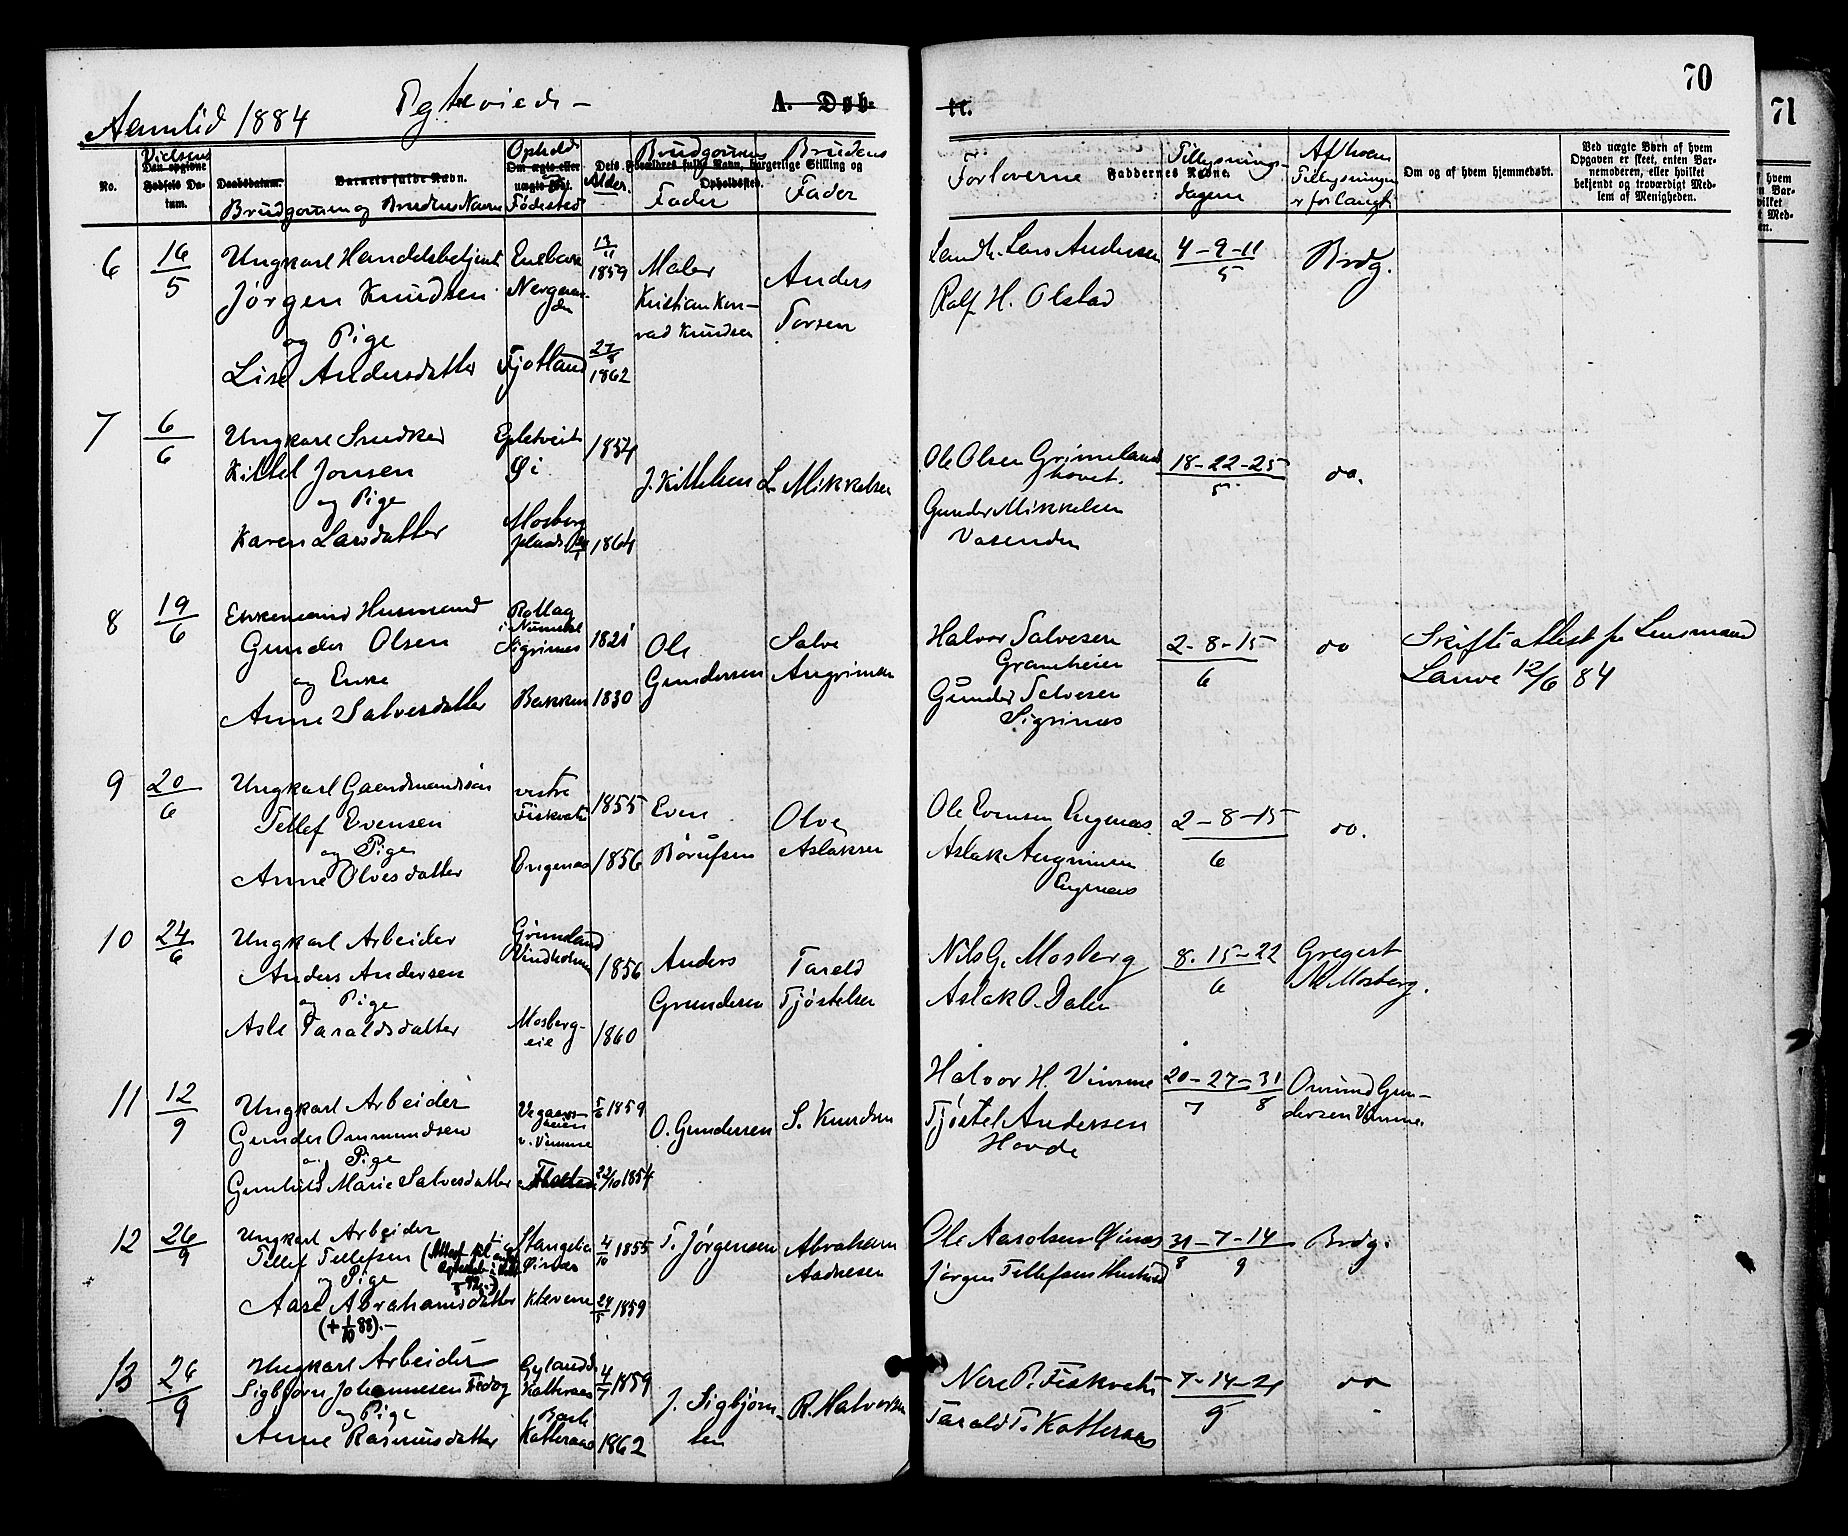 70
71
Aamlid 1884
Ægteviede -
A. Døb-
te.
No.
Vielsens
Den opgivne Fødsels Datum.
Daabsdatum.
Barnets fulde Navn.
Brudgommen og Brudens Navn
Ophold
Om ægte eller uægte født.
Fødested
Alder.
Dets Forældres fulde Navn, borgerlige Stilling og Opholdssted.
Brudgommens Fader
Brudens Fader
Forloverne
Faddernes Navne.
Tillysnings-
dagene
Af hvem
Tillysningen
er forlangt
Om og af hvem hjemmedøbt.
Ved uægte Børn af hvem
Opgaven er skeet, enten Bar-
nemoderen, eller hvilket
bekjendt og troværdigt Med-
lem af Menigheden.
6 16/5
Ungkarl Handelsbetjent
Jørgen Knudsen
og Pige
Lise Andersdatter
Fjotland
1859
27/8 1862
Maler
Kristian Kon-
rad Knudsen
Anders
Torsen
Landh. Lars Andersen
Rolf H. Olstad
4-9-11
5
Brdg.
7 6/6
Ungkarl Snedker
Kittel Jonsen
og Pige
Karen Larsdatter
Epletveit
Øi
Mosberg
plads
1854
1864
J. Kittelsen
L Mikkelsen
Ole Olsen Grimeland
hovet.
Gunder Mikkelsen
Vasenden
18-22-25
5
do.
8 19/6
Enkemand Husmand
Gunder Olsen
og Enke
Anne Salvesdatter
Rollag
i Numedal
Sigrinæs
Bakken
1821
1830
Ole
Gundersen
Salve
Angrimsen
Halvor Salvesen
Gramheien
Gunder Salvesen
Sigrinæs
2-8-15
6
do
Skifteattest fra Lensmand
Lauve 12/6 84
9 20/6
Ungkarl Gaardmandssøn
Tellef Evensen
og Pige
Anne Olvesdatter
vestre
Fiskvatn
Engenæs
1855
1856
Even
Børufsen
Olve
Aslaksen
Ole Evensen Engenæs
Aslak Angrimsen
Engenæs
2-8-15
6
do.
10 24/6
Ungkarl Arbeider
Anders Andersen
og Pige
Asle Taraldsdatter
Grimeland
Vindholmen
Mosberg-
eie
1856
1860
Anders
Gundersen
Tarald
Tjøstelsen
Nils G. Mosberg
Aslak O. Dalen
8.15-22
6
Gregert
N. Mosberg.
11 12/9
Ungkarl Arbeider
Gunder Ommundsen
og Pige
Gunhild Marie Salvesdatter
v. Vimme
1859
22/10 1854
O. Gundersen
S. Knudsen
Halvor H. Vimme
Tjøstel Andersen
Hovde
20-27-31
7 8
Omund Gun-
dersen Vimme.
12 26/9
Ungkarl Arbeider
Tellef Tellefsen
og Pige
Aase Abrahamsdatter
(+ 1/10 88).-
Stangelia
Klevene
4/10 1855
24/5 1859
T. Jørgensen
Abraham
Aadnesen
Ole Aanolsen Øinæs
Jørgen Tellefsen Hustved
31-7-14
8 9
Brdg.
13 26/9
Ungkarl Arbeider
Sigbjørn Johannesen
og Pige
Anne Rasmusdatter
Gyland
Katteraas
Katteraas
4/7 1859
1862
J. Sigbjørn-
sen
R. Halvorsen
Nere P. Fiskvatn
Tarald T. Katteraas
7-14-21
9
do